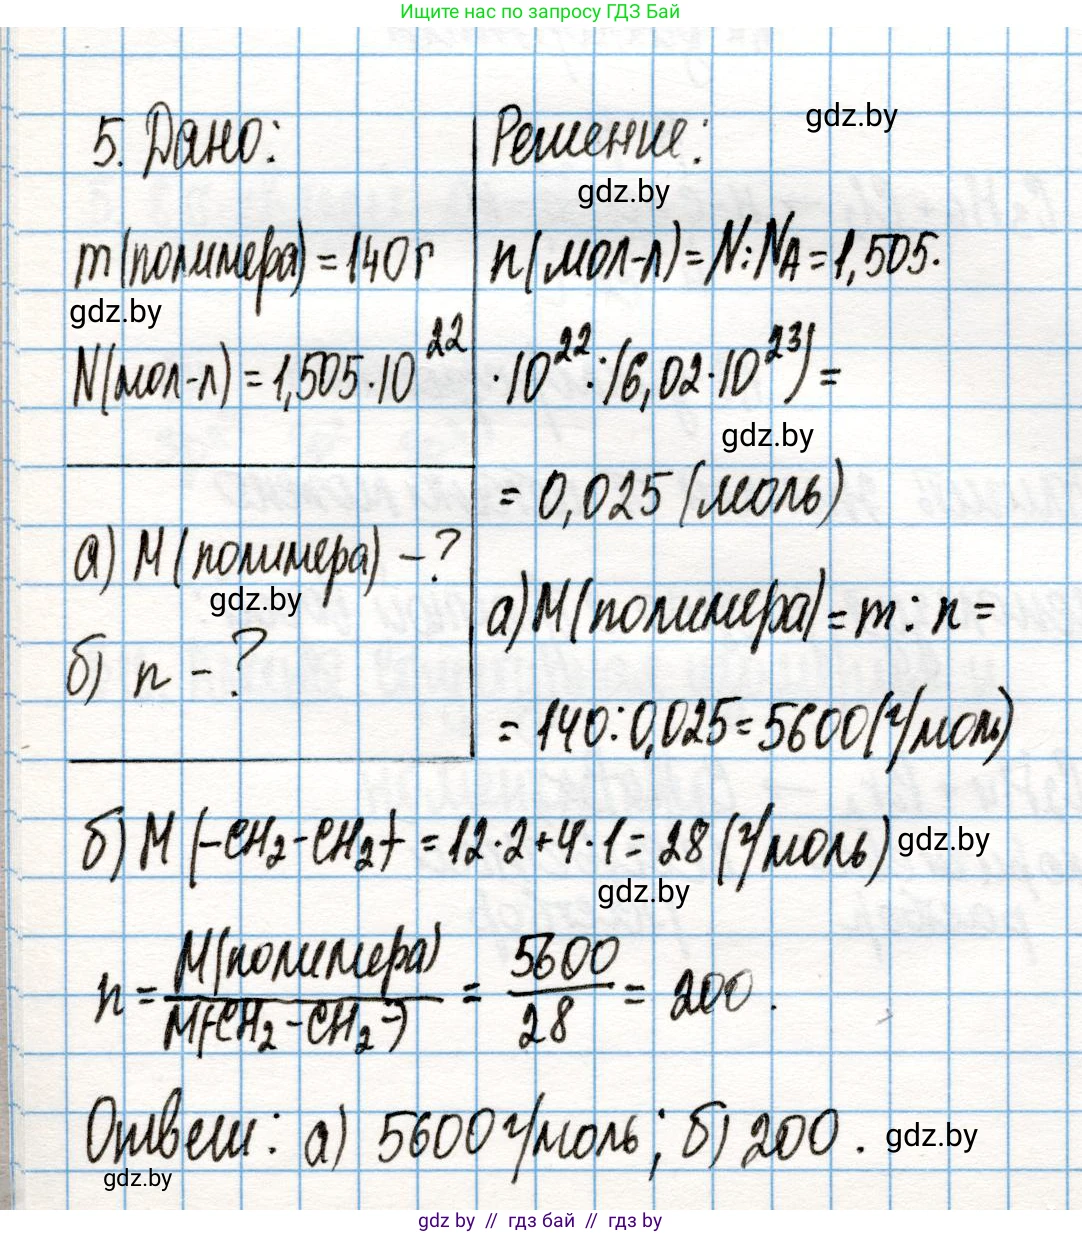 Ищите нас по запросу ГДЗ Бай
5. Дано:
Решение:
gdz.by
gdz.by
m(полимера) = 140 г
n(мол-л) = N : NA = 1,505·
gdz.by
N(мол-л) = 1,505·10²²
·10²² : (6,02·10²³) =
gdz.by
= 0,025 (моль)
а) M(полимера) - ?
gdz.by
а) M(полимера) = m : n =
б) n - ?
= 140 : 0,025 = 5600 (г/моль)
б) M (-CH₂-CH₂-) = 12·2+4·1 = 28 (г/моль)
gdz.by
gdz.by
n = M(полимера) / M(-CH₂-CH₂-) = 5600 / 28 = 200.
Ответ: а) 5600 г/моль; б) 200.
gdz.by
gdz.by
gdz by // гдз бай // гдз by